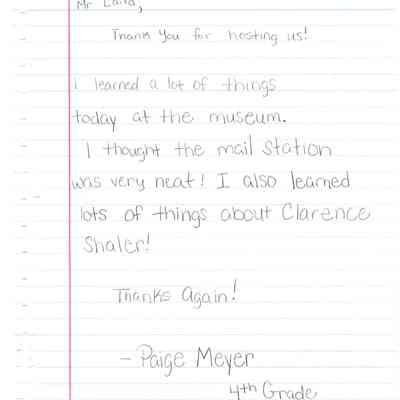 Mr Laird,
Thank You for hosting us!
i learned a lot of things
today at the museum.
I thought the mail station
was very neat! I also learned
lots of things about Clarence
Shaler!
Thanks Again!
- Paige Meyer
4th Grade